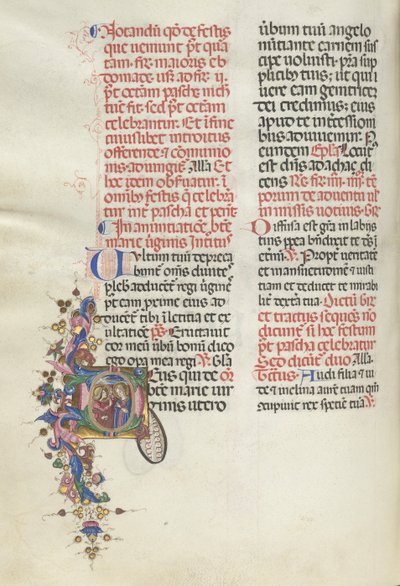 Notandum qd de festis
que veniunt p't qua
tam. fer. maioris eb
domade usq ad fer. ij.
p't octam pasche nich
sit. fit. sed p't octam
celebrantur. Et in fine
cuiuslibet introitus
offerende & communio
nis adiungit Alla. Et
hec idem obseruatur. si
festum celebra
tur inter pascha et pent
In annuntiatioe bte
marie uirginis Introitus
Vultum tuum depreca
buntur omes diuites
plebis adducent regi uirgines
p't eam proxime eius ad
ducent tibi in letitia et ex
ultatioe. ps. Eructauit
cor meum uerbum bonum dico
ego opera mea regi. V. Gla
Deus qui de or
beate marie uir
ginis utero
uerbum tuum angelo
nuntiante carnem sus
cipe uoluisti. pra sup
plicibus tuis; ut qui
uere eam genitricem
dei credimus; eius
apud te intercessioni
bus adiuuemur. P
eundem Epla. Locutus
est dns ad achaz di
cens. Re. fer. iiij. iiij. te
porum de aduentu ul
in missis uotiuis. Gr
Diffusa est gra in labijs
tuis. ppea bndixit te ds i
etnu. V. Propter ueritate
et mansuetudine et iustitia
et deducet te mirabili
ter dextera tua. Dictum Gr
et tractus sequens no
dicuntur si hoc festum
p't pascha celebratur
Sed dicuntur duo. Alla.
Tractus. Audi filia & ui
de & inclina aurem tuam quia
cocupiuit rex speciem tua. V.